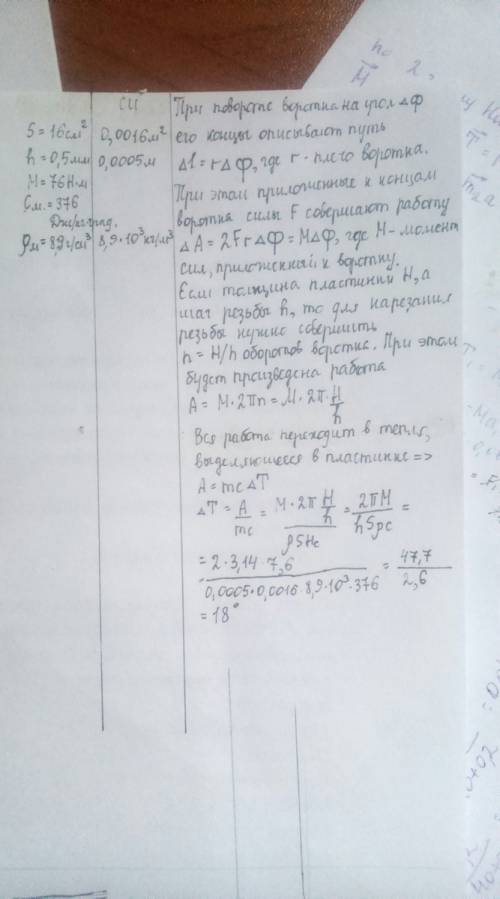 СИ
S = 16 см² 0,0016 м²
h = 0,5 мм 0,0005 м
M = 76 Н·м
См. = 376
Дж/кг·град.
ρм = 8,9 г/см³ 8,9·10³ кг/м³
При повороте воротка на угол Δφ
его концы описывают путь
Δl = rΔφ, где r - плечо воротка.
При этом приложенные к концам
воротка силы F совершают работу
ΔA = 2FrΔφ = MΔφ, где M - момент
сил, приложенный к воротку.
Если толщина пластинки H, а
шаг резьбы h, то для нарезания
резьбы нужно совершить
n = H/h оборотов воротка. При этом
будет произведена работа
A = M·2πn = M·2π H/h
Вся работа переходит в тепло,
выделяющееся в пластинке =>
A = mcΔT
ΔT = A/mc = M·2π H/h / ρSHc = 2πM / hSρc =
= 2·3,14·7,6 / 0,0005·0,0016·8,9·10³·376 = 47,7 / 2,6
= 18°